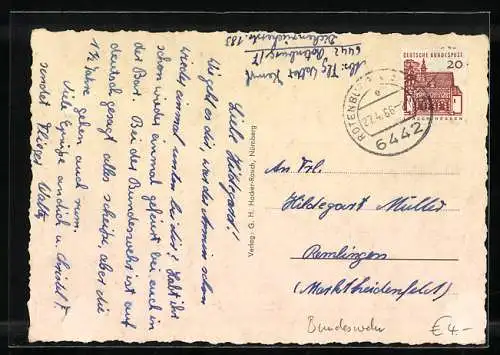 Abs. Flg Walter Kempf
6442 Rotenburg/F
183
Liebe Hildegard!
Wie geht es dir, war der Armin schon
wieder einmal unten bei dir? Habt ihr
schon wieder einmal gefeiert bei euch in
der Bar. Bei der Bundeswehr ist auf
deutsch gesagt alles scheiße, aber die
1½ Jahre gehen auch rum.
Viele Grüße an dich u. Christl
sendet Walter
Verlag: G. H. Hacker-Rasch, Nürnberg
DEUTSCHE BUNDESPOST
20
ROTENBURG
e
27.4.66
6442
An Frl.
Hildegart Müller
Remlingen
(Marktheidenfeld)
Bundeswehr
€ 4-